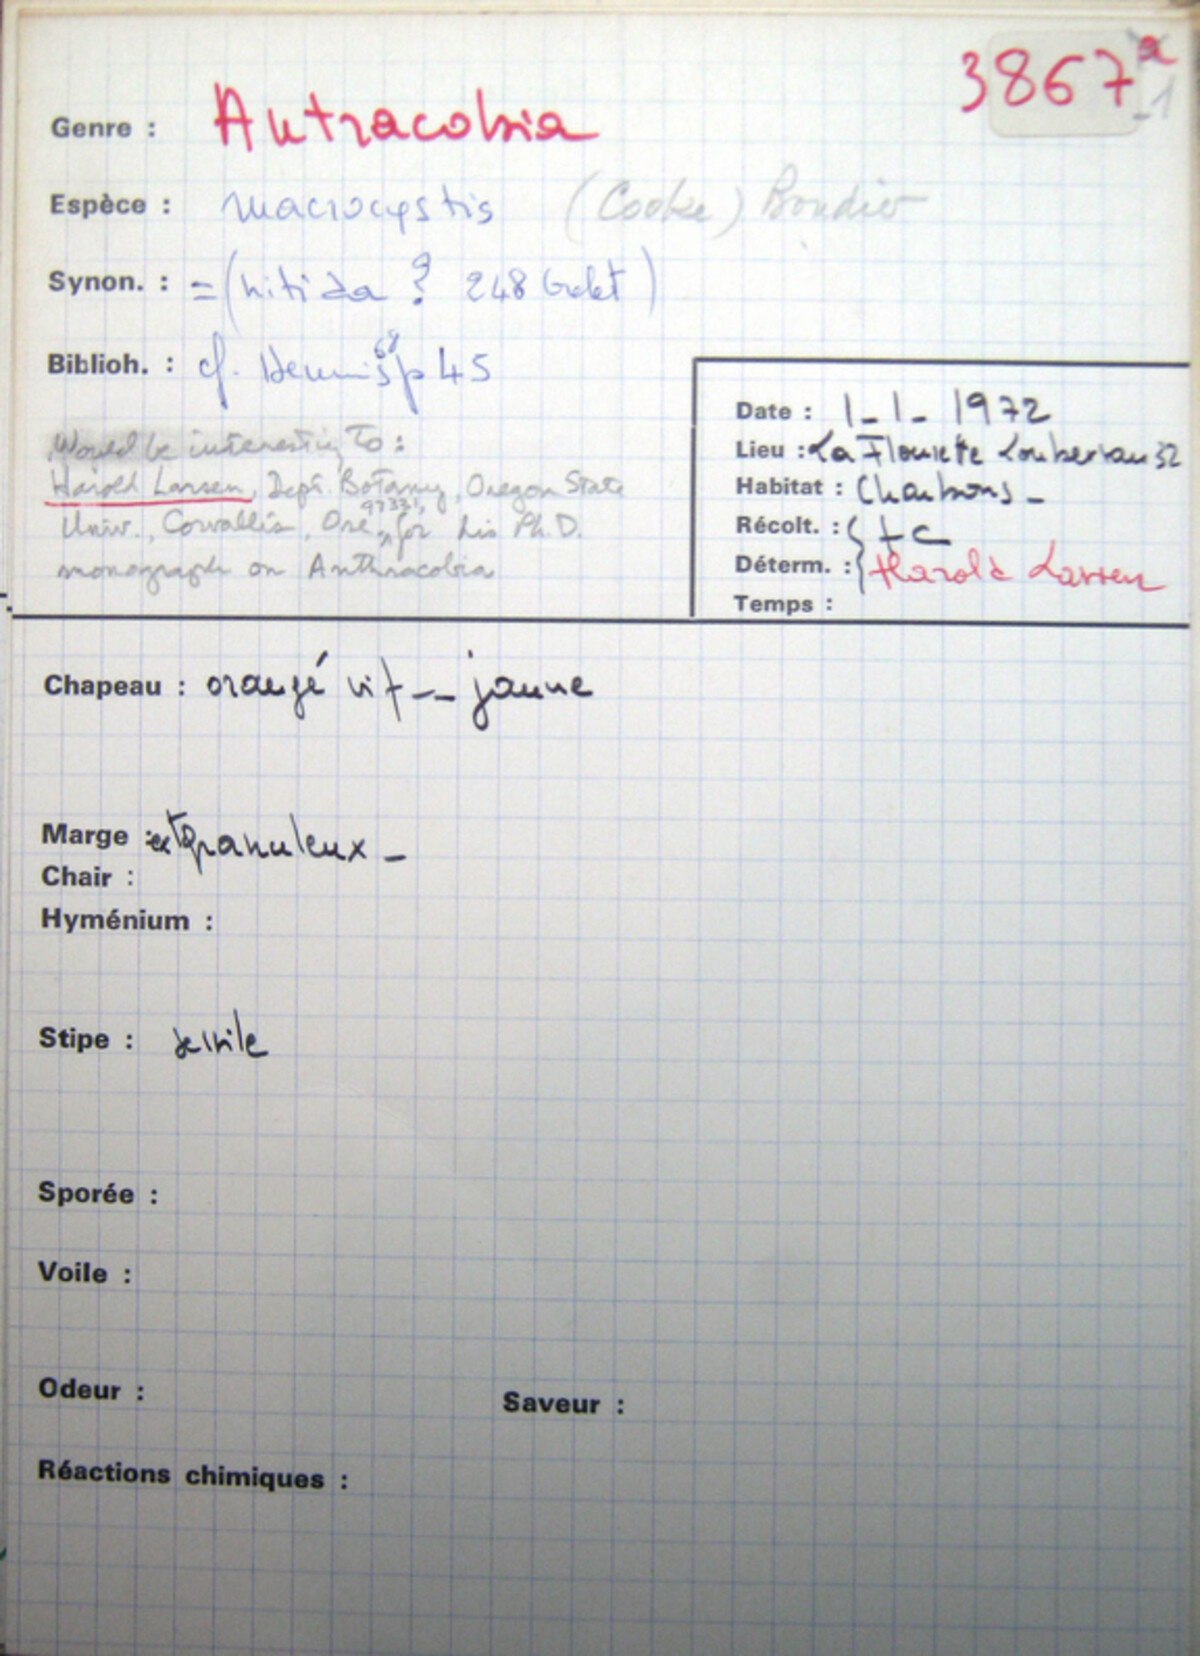 3867 a
-1
Genre : Antracobia
Espèce : macrocystis (Cooke) Boudier
Synon. : = (nitida ? 248 )
Biblioh. : cf. Dennis 68 p 45
Would be interesting To :
Harold Larsen, Dept. Botany, Oregon State
Univ., Corvallis, Ore. 97331, for his Ph.D.
monograph on Anthracobia
Date : 1-1-1972
Lieu : La 32
Habitat : Charbons -
Récolt. :
Déterm. : Harold Larsen
Temps :
Chapeau : orangé vif -- jaune
Marge : ext granuleux -
Chair :
Hyménium :
Stipe : sessile
Sporée :
Voile :
Odeur : Saveur :
Réactions chimiques :